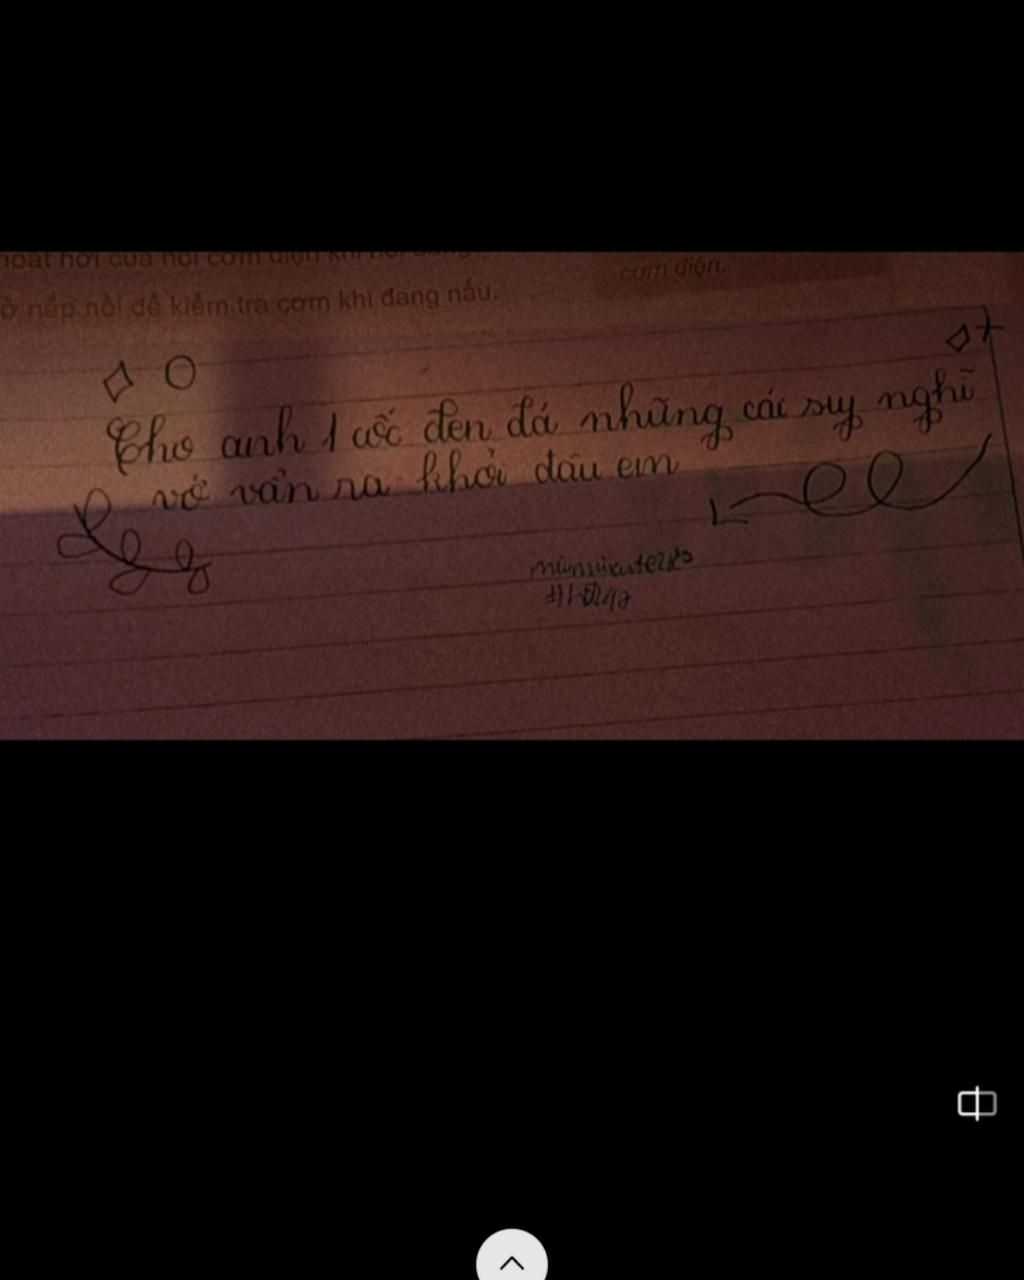 hoát hơi của nồi cơm điện khi nồi
ở nắp nồi để kiểm tra cơm khi đang nấu.
cơm điện.
Cho anh 1 cốc đen đá những cái suy nghĩ
vớ vẩn ra khỏi đầu em